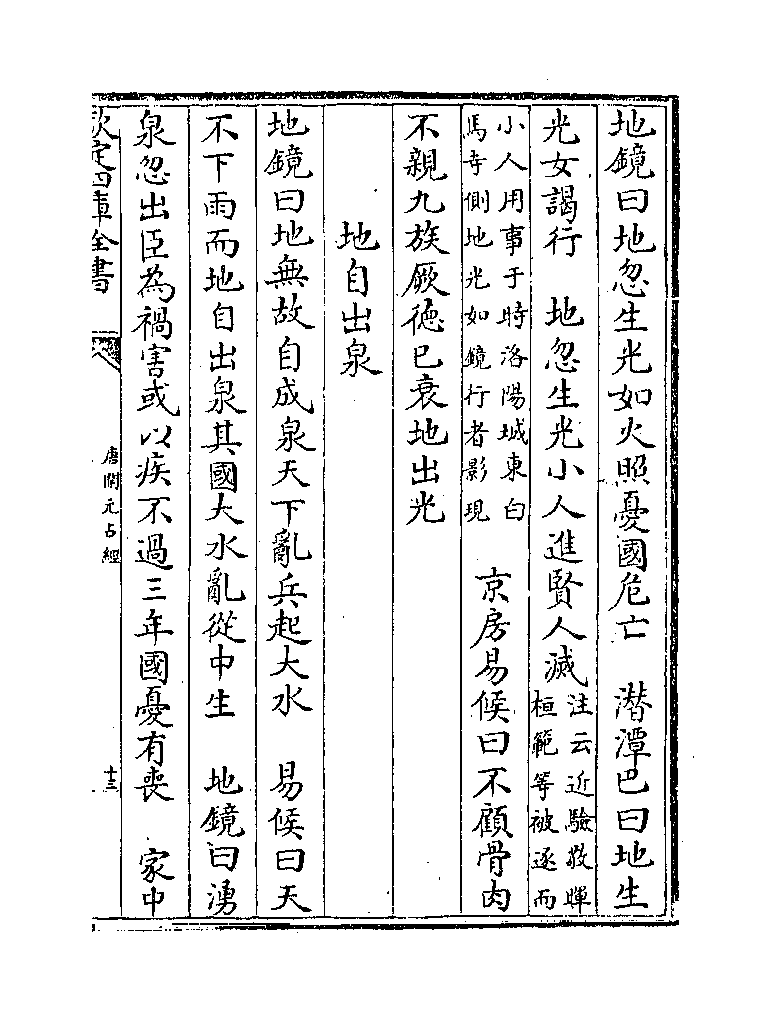 地鏡曰地忽生光如火照憂國危亡　潜潭巴曰地生
光女謁行　地忽生光小人進賢人滅注云近驗敬暉桓範等被逐而
小人用事于時洛陽城東白馬寺側地光如鏡行者影現　京房易候曰不顧骨肉
不親九族厥徳已衰地出光
地自出泉
地鏡曰地無故自成泉天下亂兵起大水　易候曰天
不下雨而地自出泉其國大水亂從中生　地鏡曰湧
泉忽出臣為禍害或以疾不過三年國憂有喪　家中
欽定四庫全書
唐開元占經
十三